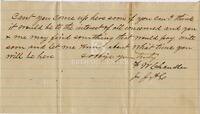 Can't you come up here soon if you can I think
it would be to the interest of all concerned and you
& me may find something that would pay write
soon and let me know about what time you
will be here Hope you
H W Chandler